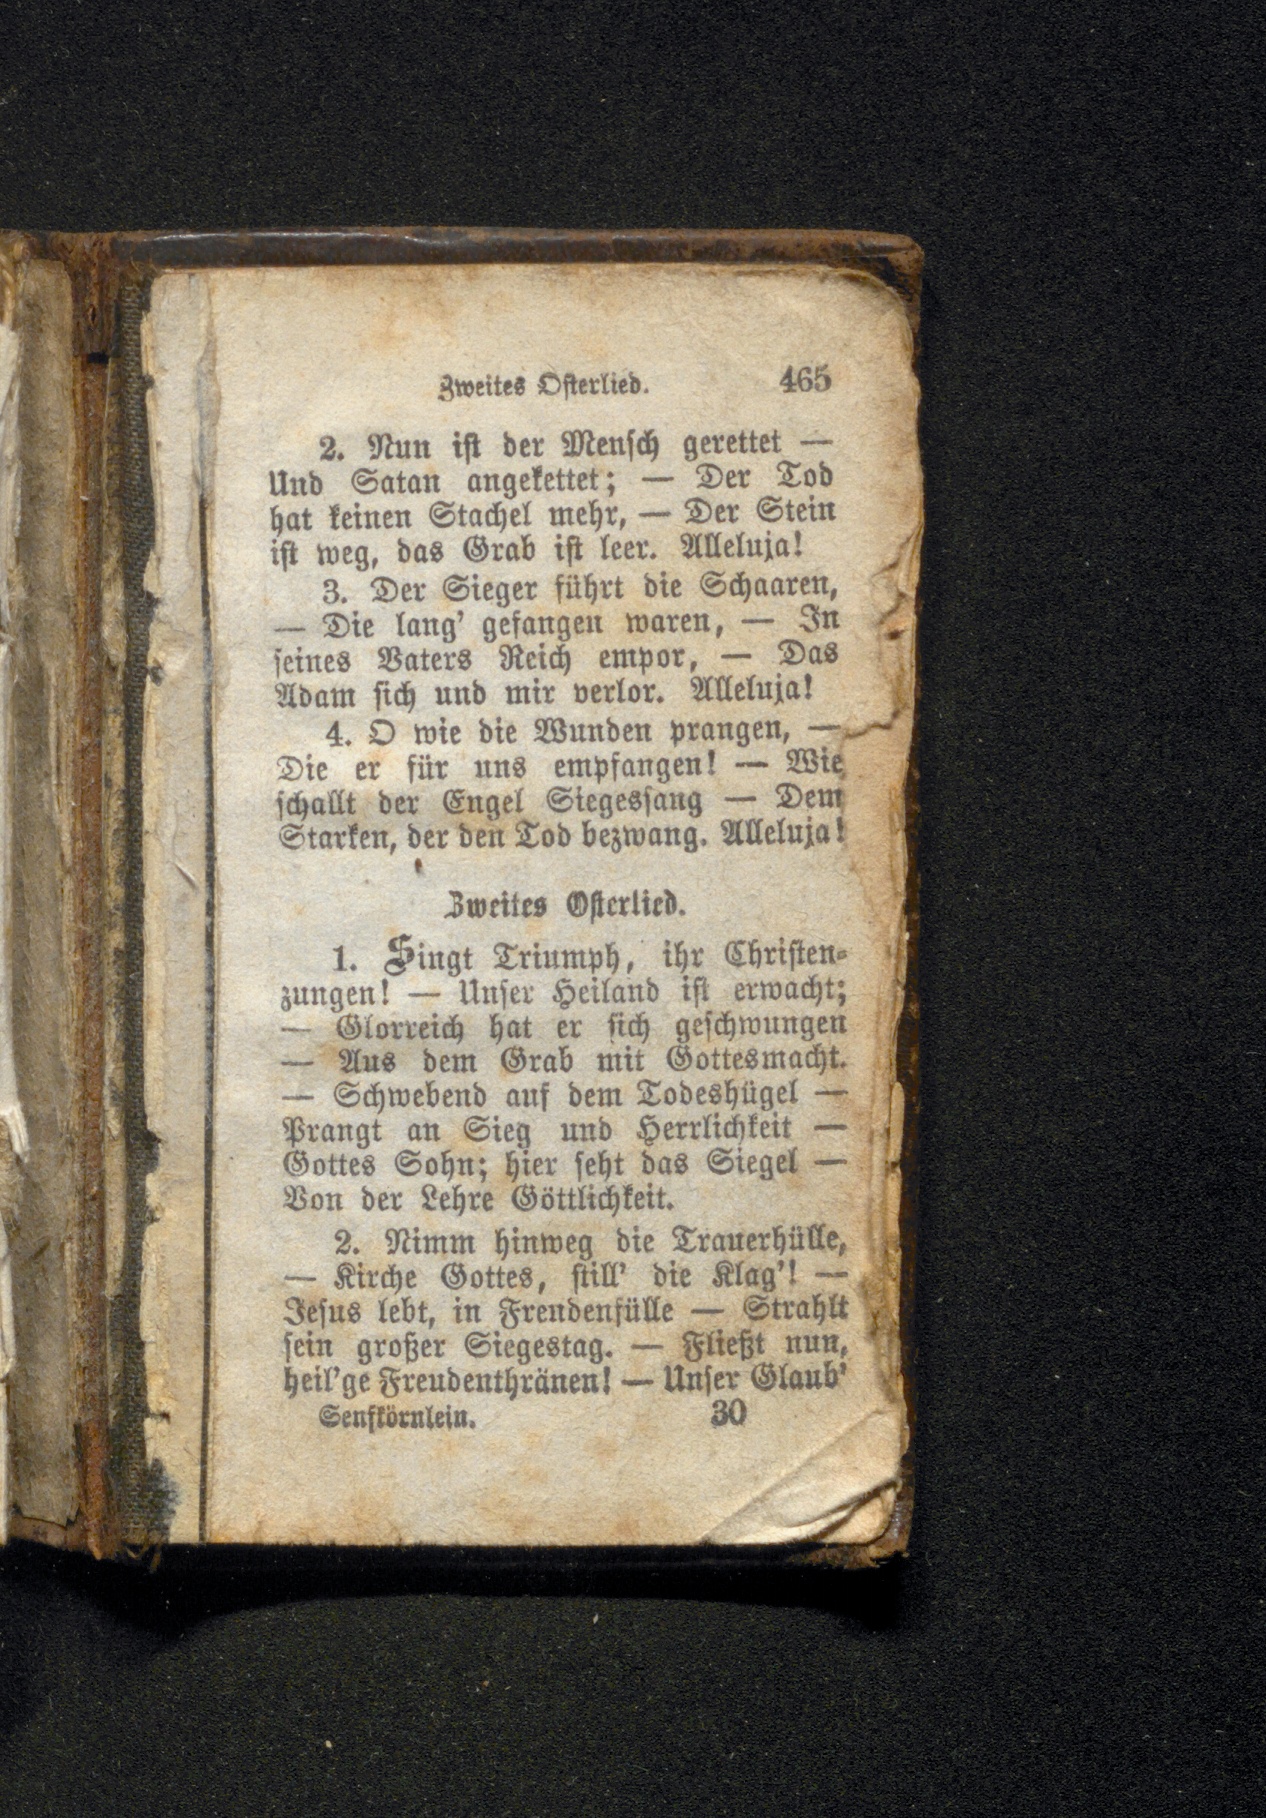 Zweites Osterlied. 465
2. Nun ist der Mensch gerettet —
Und Satan angekettet; — Der Tod
hat keinen Stachel mehr, — Der Stein
ist weg, das Grab ist leer. Alleluja!
3. Der Sieger führt die Schaaren,
— Die lang' gefangen waren, — In
seines Vaters Reich empor, — Das
Adam sich und mir verlor. Alleluja!
4. O wie die Wunden prangen, —
Die er für uns empfangen! — Wie
schallt der Engel Siegessang — Dem
Starken, der den Tod bezwang. Alleluja!
Zweites Osterlied.
1. Singt Triumph, ihr Christen-
zungen! — Unser Heiland ist erwacht;
— Glorreich hat er sich geschwungen
— Aus dem Grab mit Gottesmacht.
— Schwebend auf dem Todeshügel —
Prangt an Sieg und Herrlichkeit —
Gottes Sohn; hier seht das Siegel —
Von der Lehre Göttlichkeit.
2. Nimm hinweg die Trauerhülle,
— Kirche Gottes, still' die Klag'! —
Jesus lebt, in Freudenfülle — Strahlt
sein großer Siegestag. — Fließt nun,
heil'ge Freudenthränen! — Unser Glaub'
Senfkörnlein. 30